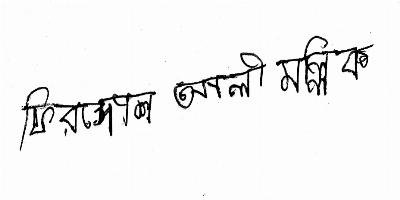 ফিরদোস আলী মল্লিক